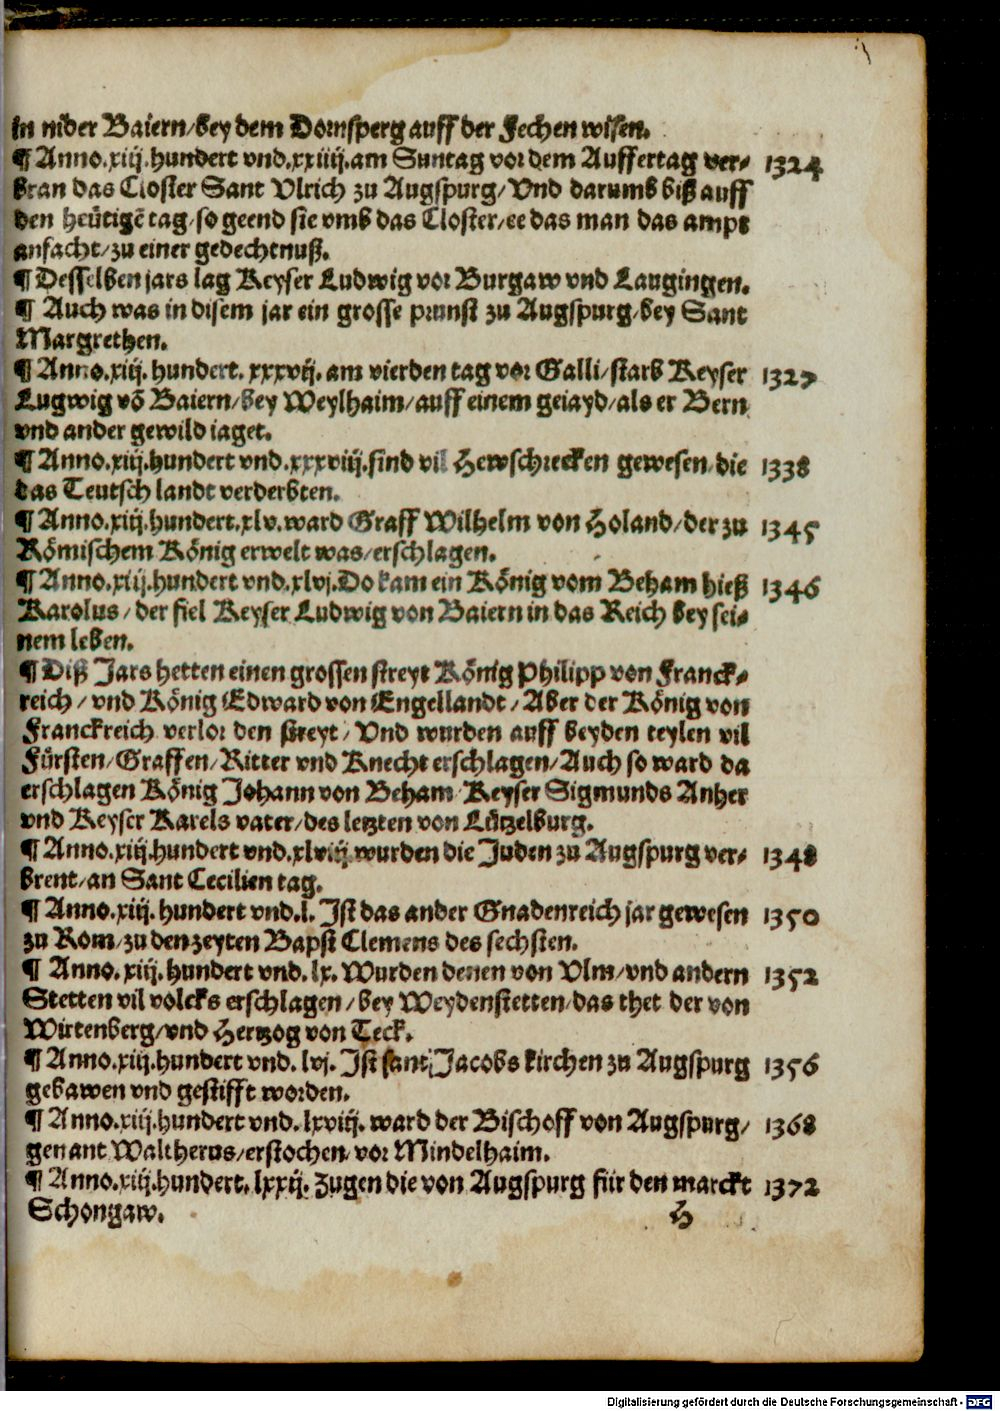 in nider Baiern/bey dem Dornsperg auff der Fechen wisen.
¶ Anno.xiij.hundert vnd.xxiiij.am Suntag vor dem Auffertag ver⸗ 1324
bran das Closter Sant Vlrich zu Augspurg/Vnd darumb biß auff
den heütigē tag/so geend sie vmb das Closter/ee das man das ampt
anfacht/zu einer gedechtnuß.
¶ Desselben jars lag Keyser Ludwig vor Burgaw vnd Laugingen.
¶ Auch was in disem jar ein grosse prunst zu Augspurg/bey Sant
Margrethen.
¶ Anno.xiij.hundert.xxxvij.am vierden tag vor Galli/starb Keyser 1327
Lugwig vō Baiern/bey Weylhaim/auff einem geiayd/als er Bern
vnd ander gewild iaget.
¶ Anno.xiij.hundert vnd.xxxviij.sind vil Hewschrecken gewesen/die 1338
das Teutsch landt verderbten.
¶ Anno.xiij.hundert.xlv.ward Graff Wilhelm von Holand/der zu 1345
Römischem König erwelt was/erschlagen.
¶ Anno.xiij.hundert vnd.xlvj.Do kam ein König vom Beham hieß 1346
Karolus/der fiel Keyser Ludwig von Baiern in das Reich bey sei⸗
nem leben.
¶ Diß Jars hetten einen grossen streyt König Philipp von Franck⸗
reich/vnd König Edward von Engellandt/Aber der König von
Franckreich verlor den streyt/Vnd wurden auff beyden teylen vil
Fürsten/Graffen/Ritter vnd Knecht erschlagen/Auch so ward da
erschlagen König Johann von Beham/Keyser Sigmunds Anher
vnd Keyser Karels vater/des letzten von Lützelburg.
¶ Anno.xiij.hundert vnd.xlviij.wurden die Juden zu Augspurg ver⸗ 1348
brent/an Sant Cecilien tag.
¶ Anno.xiij.hundert vnd.l. Ist das ander Gnadenreich jar gewesen 1350
zu Rom/zu den zeyten Bapst Clemens des sechsten.
¶ Anno.xiij.hundert vnd.lx. Wurden denen von Vlm/vnd andern 1352
Stetten vil volcks erschlagen/bey Weydenstetten/das thet der von
Wirtenberg/vnd Hertzog von Teck.
¶ Anno.xiij.hundert vnd.lvj. Ist sant Jacobs kirchen zu Augspurg 1356
gebawen vnd gestifft worden.
¶ Anno.xiij.hundert vnd.lxviij.ward der Bischoff von Augspurg/ 1368
genant Waltherus/erstochen/vor Mindelhaim.
¶ Anno.xiij.hundert.lxxij.Zugen die von Augspurg für den marckt 1372
Schongaw. H
Digitalisierung gefördert durch die Deutsche Forschungsgemeinschaft - DFG